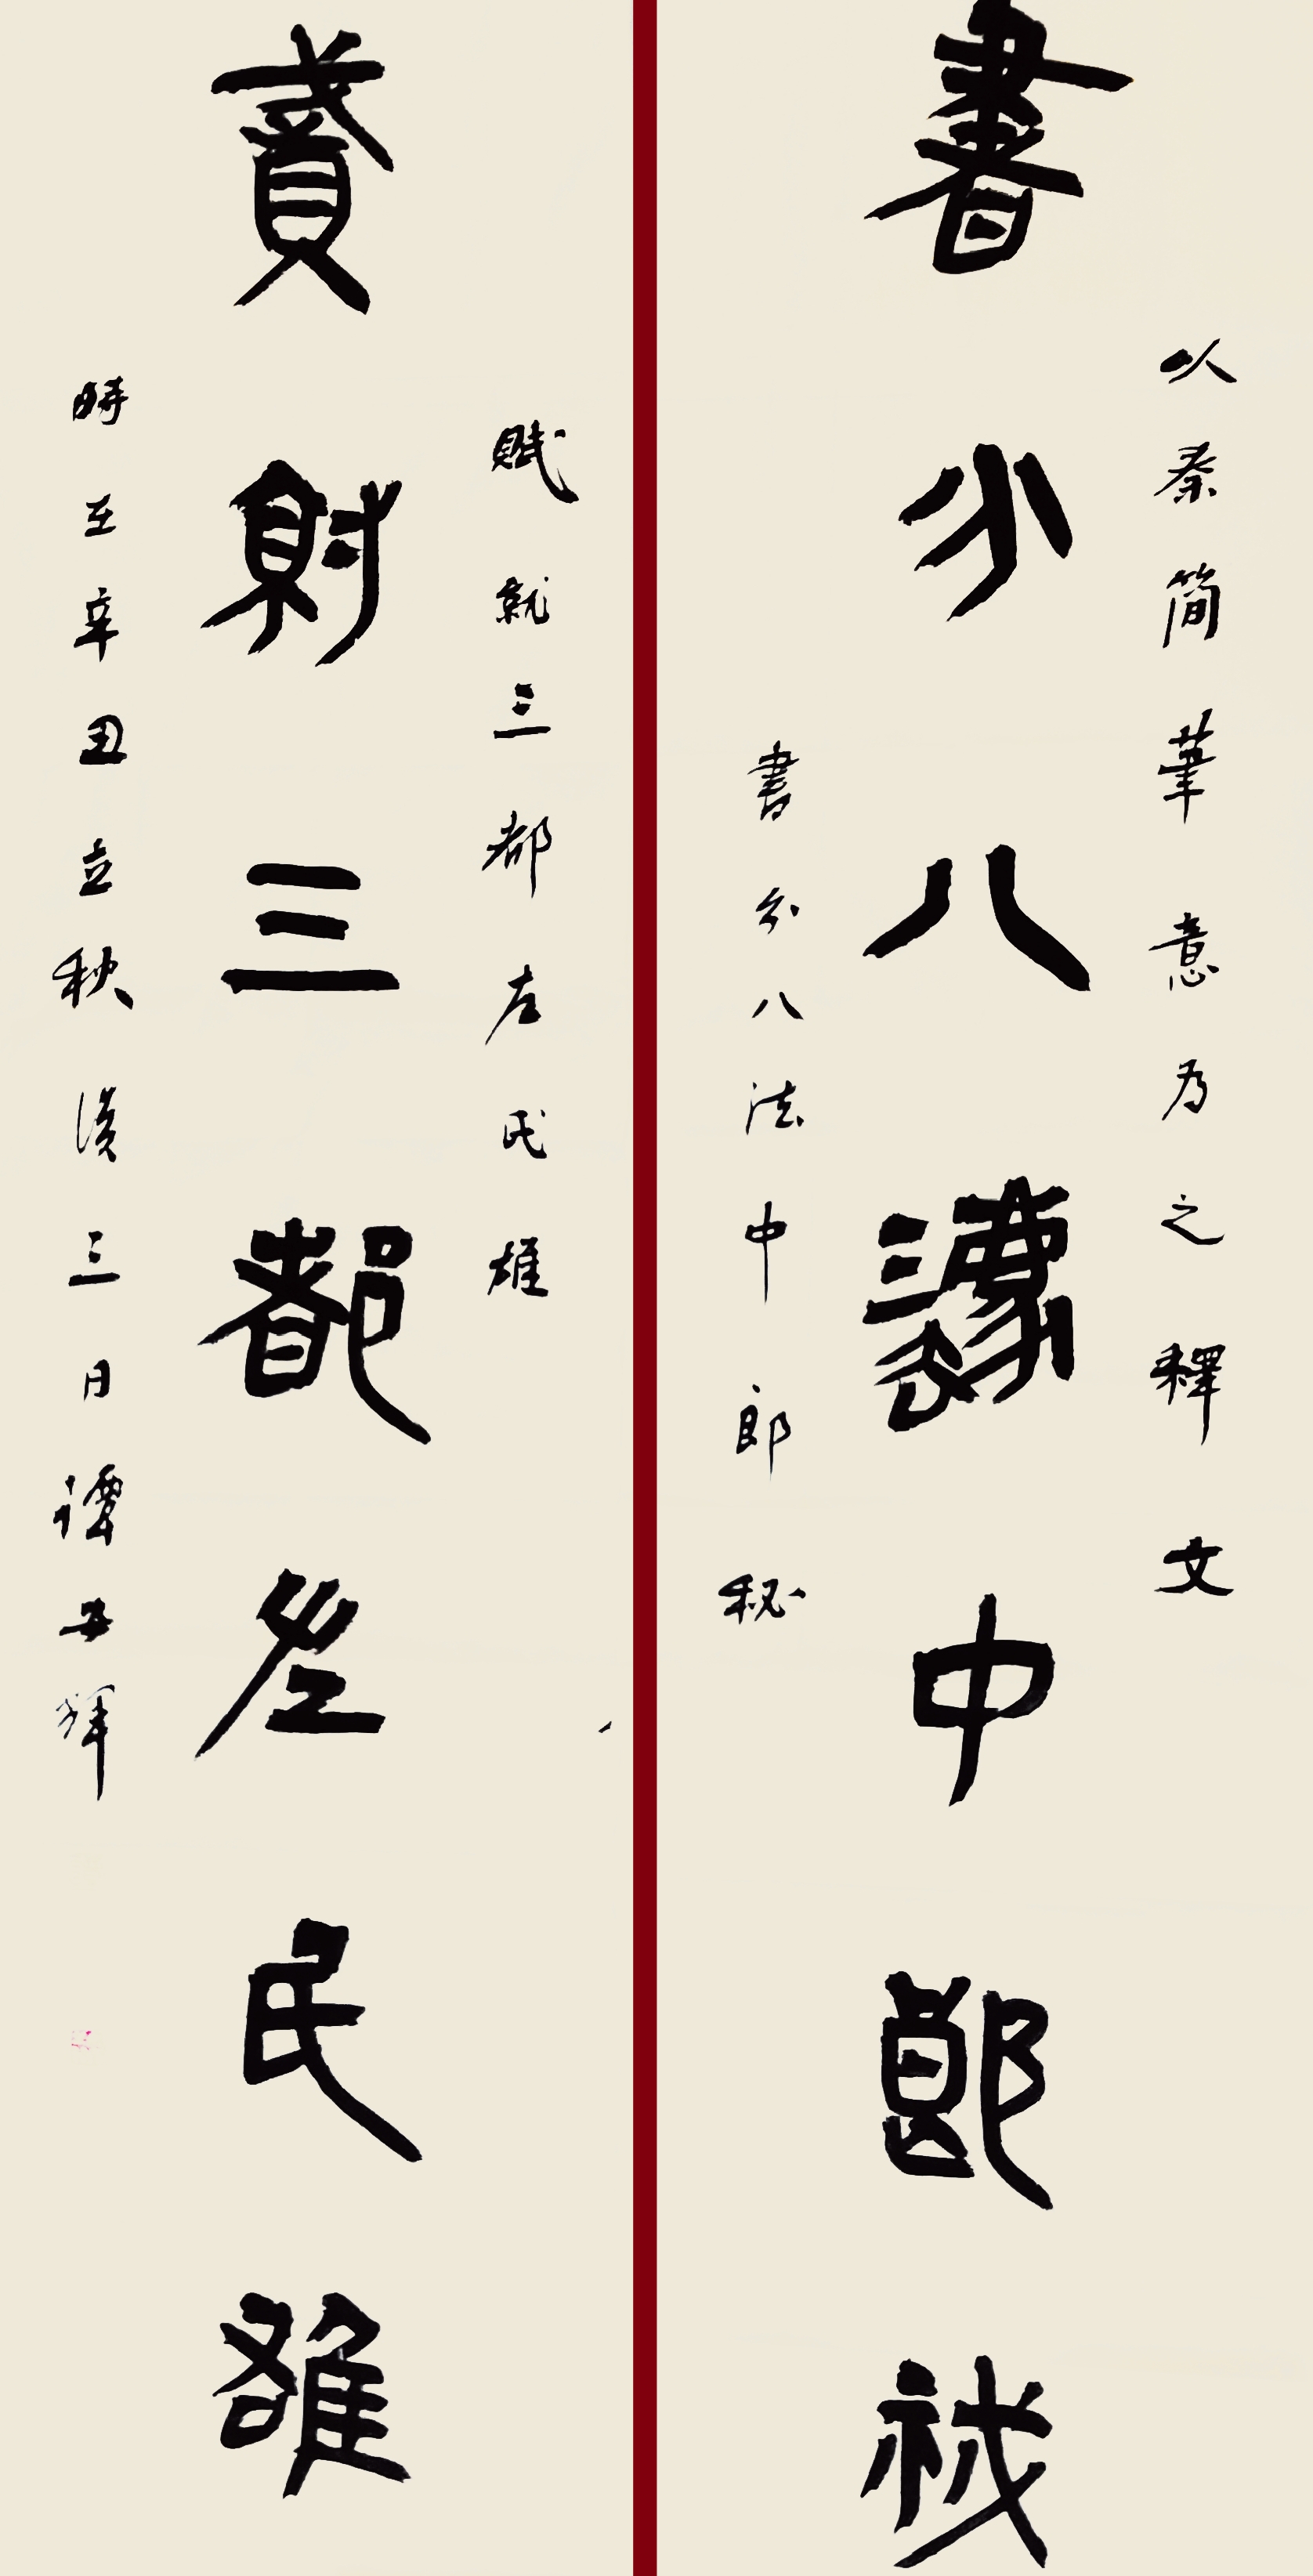 以秦简筆意为之釋文
書分八灋中郎祕
書分八法中郎秘
賦就三都左氏雄
賦就三都左氏雄
時在辛丑立秋後三日譚安輝